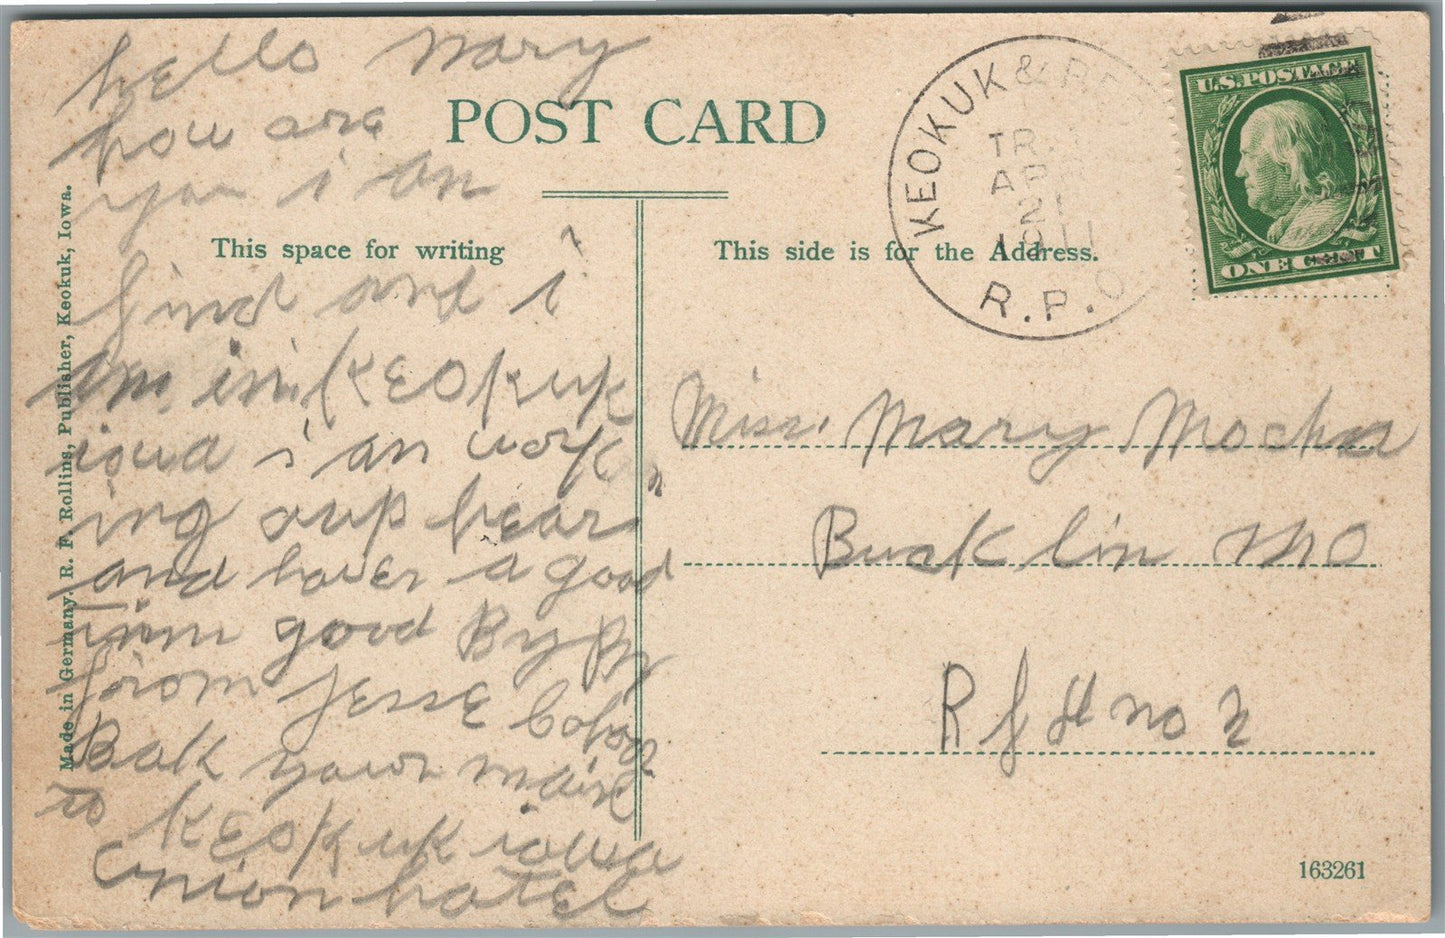 hello Mary
how are
you i an
find and i
am in KEOKuk
iowa i an work
ing oup hear
and haver a good
timm good By By
from Jesse
Bak your mail
to KEOKuk iowa
union hotel
POST CARD
This space for writing
This side is for the Address.
KEOKUK &
TR.
APR
21
1911
R.P.O.
U.S. POSTAGE
ONE CENT
Miss. Mary
Buck lin MO
R f d no 2
163261
Made in Germany. R. F. Rollins, Publisher, Keokuk, Iowa.